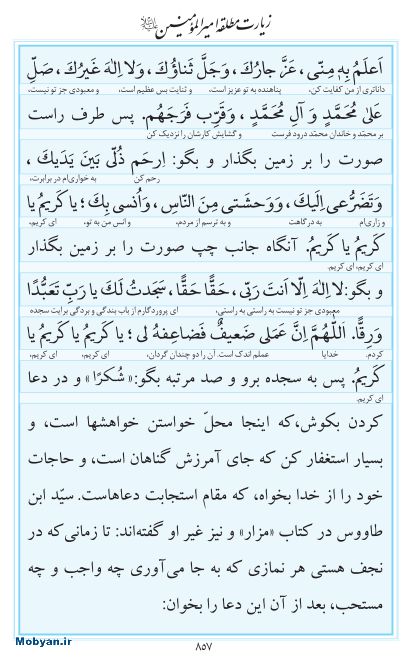 زیارت مطلقه امیرالمؤمنین علیه‌السلام
اَعلَمُ بِهٖ مِنّی، عَزَّ جارُكَ، وَجَلَّ ثَناؤُكَ، وَلا اِلٰهَ غَیرُكَ، صَلِّ
داناتری از من کفایت کن، پناهنده به تو عزیز است، و ثنایت بس عظیم است، و معبودی جز تو نیست،
عَلیٰ مُحَمَّدٍ وَ آلِ مُحَمَّدٍ، وَقَرِّب فَرَجَهُم. پس طرف راست
بر محمّد و خاندان محمّد درود فرست و گشایش کارشان را نزدیک کن
صورت را بر زمین بگذار و بگو: اِرحَم ذُلّی بَینَ یَدَیكَ ،
رحم کن به خواری‌ام در برابرت،
وَتَضَرُّعی اِلَیكَ، وَوَحشَتی مِنَ النّاسِ، وَاُنسی بِكَ؛ یا كَریمُ یا
و زاری‌ام به درگاهت و به ترسم از مردم، و انس من به تو، ای کریم،
كَریمُ یا كَریمُ. آنگاه جانب چپ صورت را بر زمین بگذار
ای کریم، ای کریم.
و بگو: لا اِلٰهَ اِلّا اَنتَ رَبّی، حَقًّا حَقًّا، سَجَدتُ لَكَ یا رَبِّ تَعَبُّدًا
معبودی جز تو نیست به راستی به راستی، ای پروردگارم از باب بندگی و بردگی برایت سجده
وَرِقًّا. اَللّٰهُمَّ اِنَّ عَمَلی ضَعیفٌ فَضاعِفهُ لی؛ یا كَریمُ یا كَریمُ یا
کردم. خدایا عملم اندک است. آن را دو چندان گردان، ای کریم، ای کریم،
كَریمُ. پس به سجده برو و صد مرتبه بگو: «شُكرًا» و در دعا
ای کریم.
کردن بکوش،که اینجا محلّ خواستن خواهشها است، و
بسیار استغفار کن که جای آمرزش گناهان است، و حاجات
خود را از خدا بخواه، که مقام استجابت دعاهاست. سیّد ابن
طاووس در کتاب «مزار» و نیز غیر او گفته‌اند: تا زمانی‌که در
نجف هستی هر نمازی که به جا می‌آوری چه واجب و چه
مستحب، بعد از آن این دعا را بخوان:
۸۵۷
Mobyan.ir